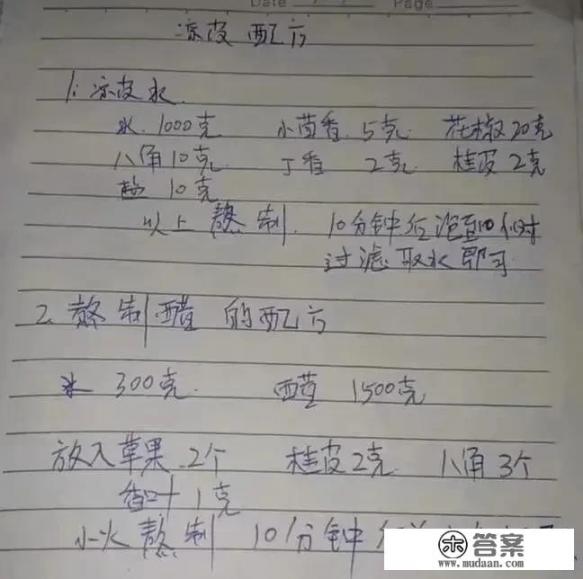 Date Page
凉皮配方
1. 凉皮水
水 1000克 小茴香 5克 花椒20克
八角10克 丁香 2克 桂皮2克
盐 10克
以上熬制 10分钟后泡 10小时
过滤取水即可
2. 熬制醋的配方
水 300克 醋 1500克
放入草果 2个 桂皮2克 八角3个
香叶1克
小火熬制 10分钟
答案
www.mudaan.com